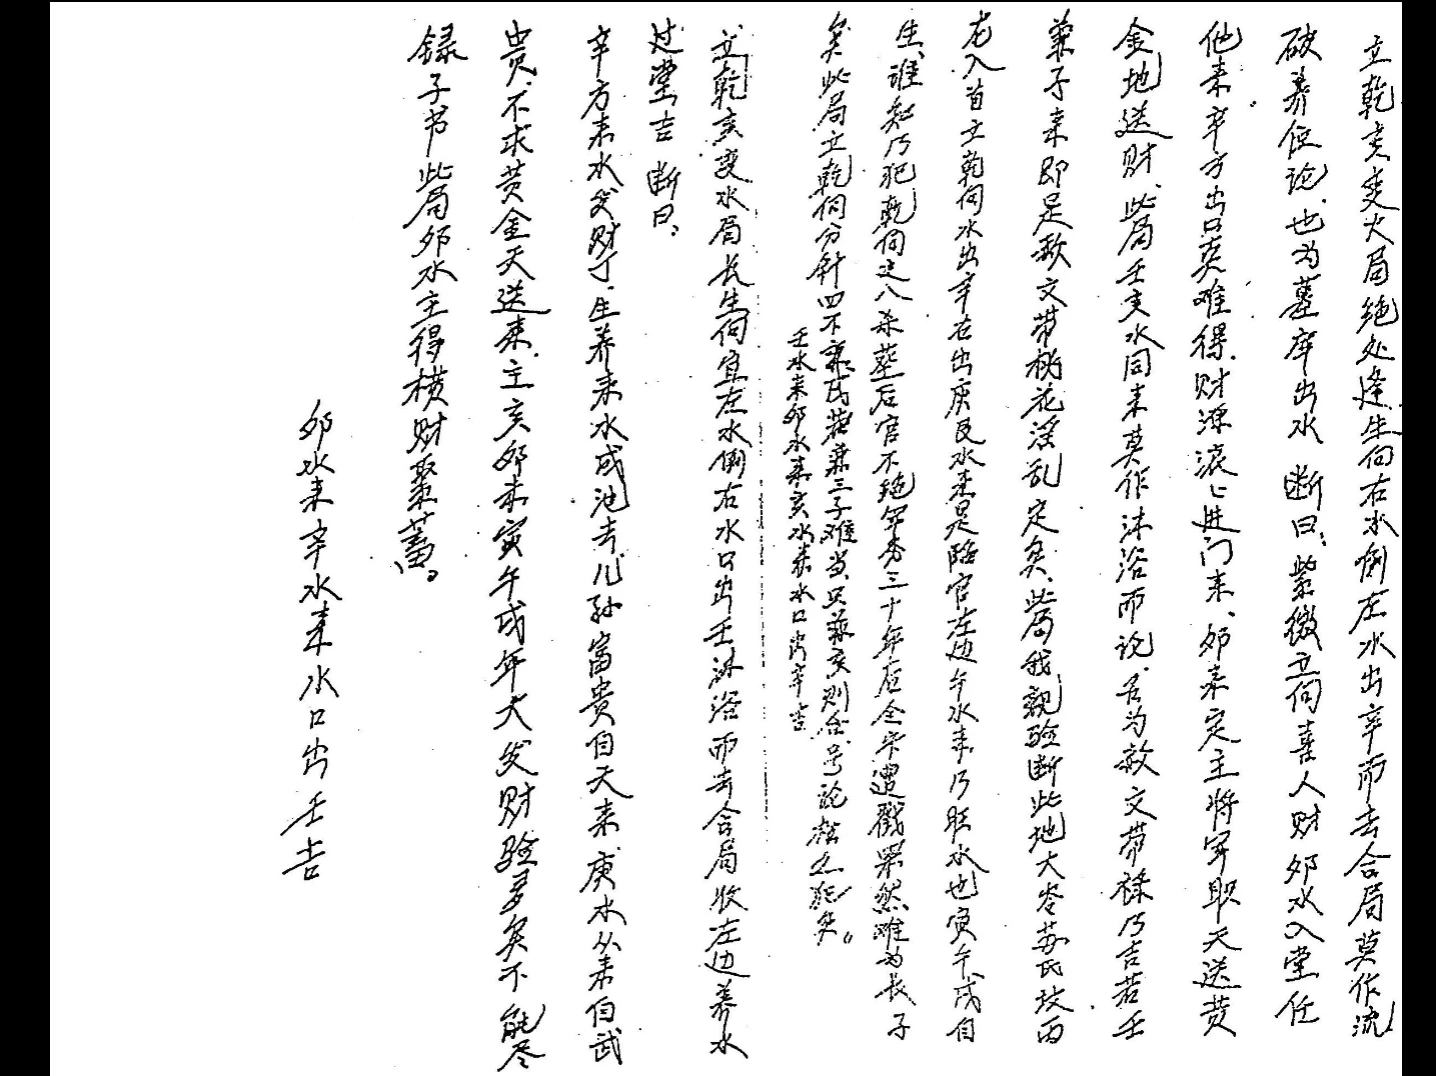 立乾亥变火局绝处逢生向右水倒左水出辛而去合局莫作流
破养位论也为墓库出水 断曰紫微立向喜人财卯水入堂任
他来辛方出口莫难得财源滚〻进门来卯来定主将军职天送黄
金地送财此局壬亥水同来莫作沐浴而论名为救文带禄乃吉若壬
兼子来即是救文带桃花淫乱定矣此局我亲验断此地大岺苏氏坟丙
龙入首立乾向水出辛在出庚艮水来是临官左边午水来乃旺水也寅午戌自
生谁知乃犯乾向之八杀葬后官不绝军务三十年应全家遭戮果然难为长子
矣此局立乾向分针四不兼三子难当只兼亥则
壬水来卯水来亥水来水口出辛吉
立乾亥变水局长生向宜左水倒右水口出壬沐浴而去合局收左边养水
过堂吉 断曰
辛方来水发财丁生养来水成池去儿孙富贵自天来庚水从来自武
贵不求黄金天送来主亥卯未寅午戌年大发财验多矣不能尽
録子书此局卯水主得横财聚蓄
卯水来辛水来水口出壬吉